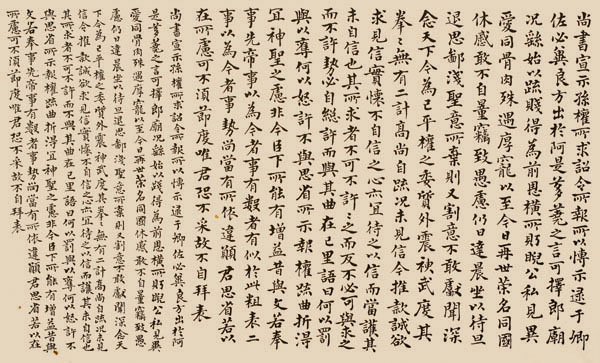 尚書宣示孫權所求詔令所報所以博示逮于卿
佐必冀良方出於阿是芻蕘之言可擇郎廟
況繇始以疏賤得為前恩橫所盼睨公私見異
愛同骨肉殊遇厚寵以至今日再世榮名同國
休慼敢不自量竊致愚慮仍日達晨坐以待旦
退思鄙淺聖意所棄則又割意不敢獻聞深
念天下今為已平權之委質外震神武度其
拳拳無有二計高尚自疏況未見信今推款誠欲
求見信實懷不自信之心亦宜待之以信而當護其
未自信也其所求者不可不許許之而反不必可與求之
而不許勢必自絕許而不與其曲在己里語曰何以罰
與以奪何以怒許不與思省所示報權疏曲折得
宜神聖之慮非今臣下所能有增益昔與文若奉
事先帝事以為今者事有數者有似於此粗表二
事以為今者事勢尚當有所依違願君思省若以
在所慮可不須節度唯君恐不采故不自拜表
尚書宣示孫權所求詔令所報所以博示逮于卿佐必冀良方出於阿
是芻蕘之言可擇郎廟況繇始以疏賤得為前恩橫所盼睨公私見異
愛同骨肉殊遇厚寵以至今日再世榮名同國休慼敢不自量竊致愚
慮仍日達晨坐以待旦退思鄙淺聖意所棄則又割意不敢獻聞深念天
下今為已平權之委質外震神武度其拳拳無有二計高尚自疏況未見
信今推款誠欲求見信實懷不自信之心亦宜待之以信而當護其未自信也
其所求者不可不許而不與其曲在己里語曰何以罰與以奪何以怒許不
與思省所示報權疏曲折得宜神聖之慮非今臣下所能有增益昔與
文若奉事先帝事有數者事勢尚當有所依違願君思省若以在
所慮可不須節度唯君恐不采故不自拜表